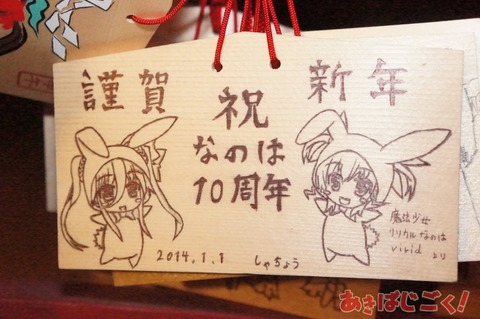 謹賀 新年
祝
なのは
10周年
魔法少女
リリカルなのは
vivid
より
2014.1.1 しゃちょう
あきばじごく!